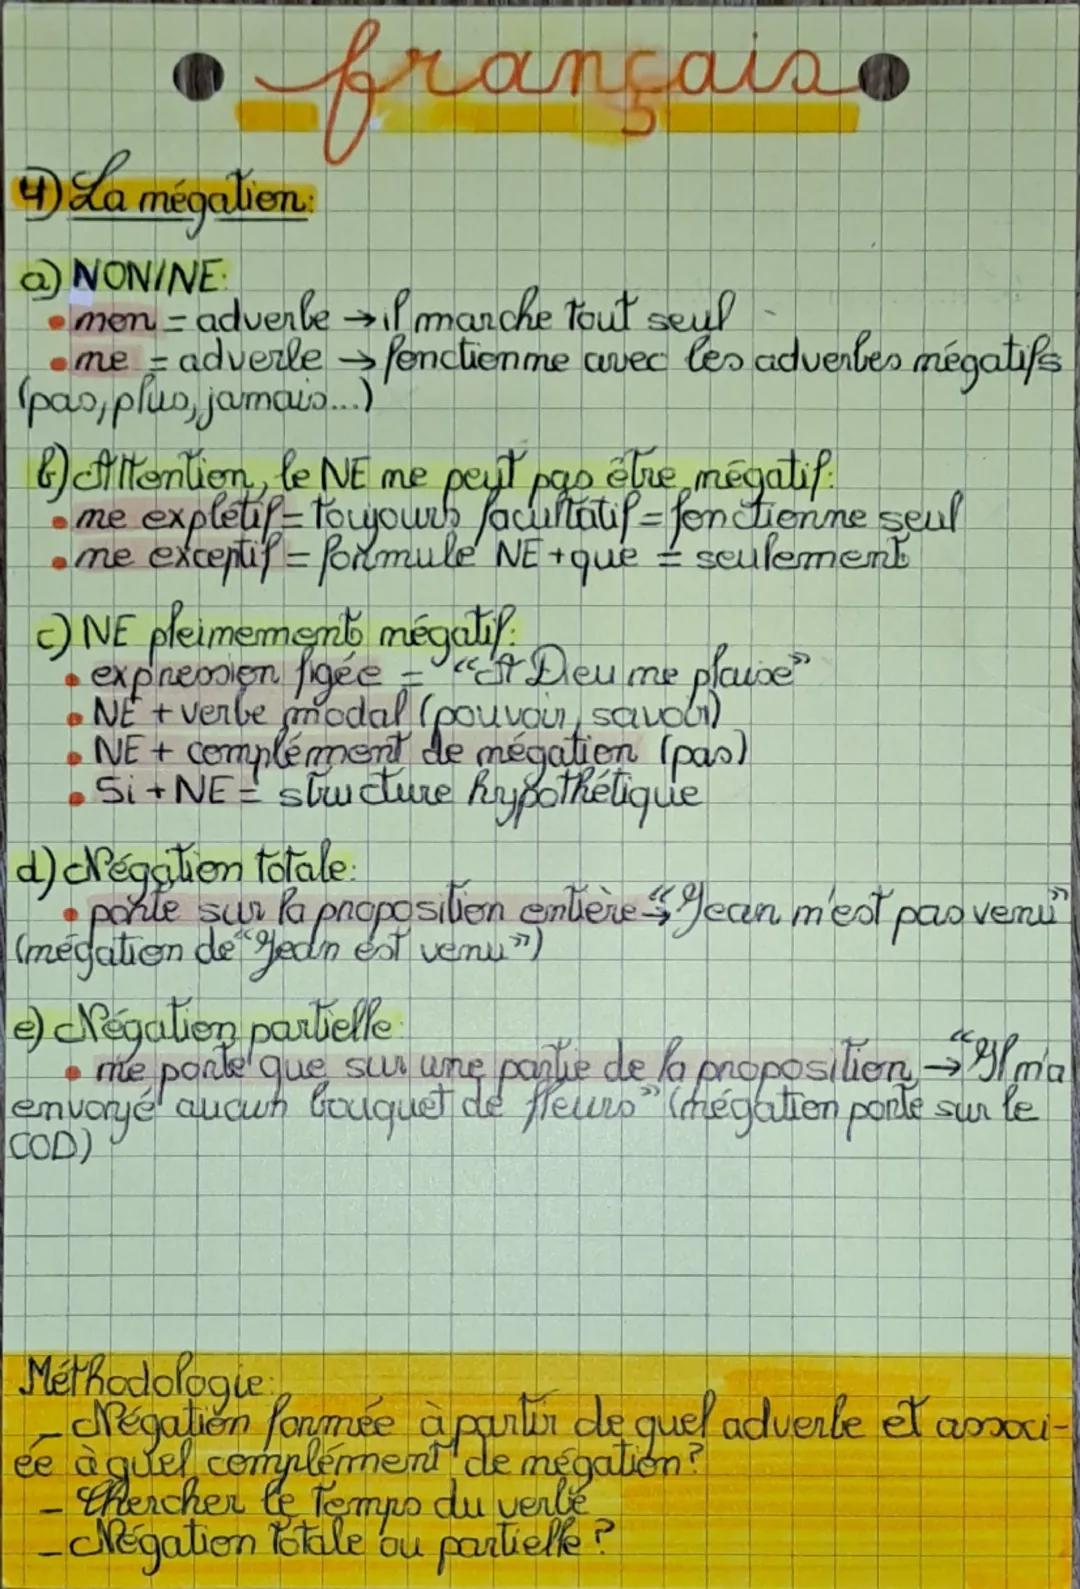 français
4) La négation:
a) NON/NE:
• non = adverbe → il marche tout seul
• ne = adverbe → fonctionne avec les adverbes négatifs
(pas, plus, jamais...)
b) Attention, le NE ne peut pas être négatif:
• ne explétif = toujours facultatif = fonctionne seul
• ne exceptif = formule NE + que = seulement
c) NE pleinement négatif:
• expression figée = "A Dieu ne plaise"
• NE + verbe modal (pouvoir, savoir)
• NE + complément de négation (pas)
• Si + NE = structure hypothétique
d) Négation totale:
• porte sur la proposition entière → "Jean n'est pas venu"
(négation de "Jean est venu")
e) Négation partielle:
• ne porte que sur une partie de la proposition → "Il n'a
envoyé aucun bouquet de fleurs" (négation porte sur le
COD)
Méthodologie:
- Négation formée à partir de quel adverbe et associ-
ée à quel complément de négation?
- Chercher le temps du verbe
- Négation totale ou partielle?